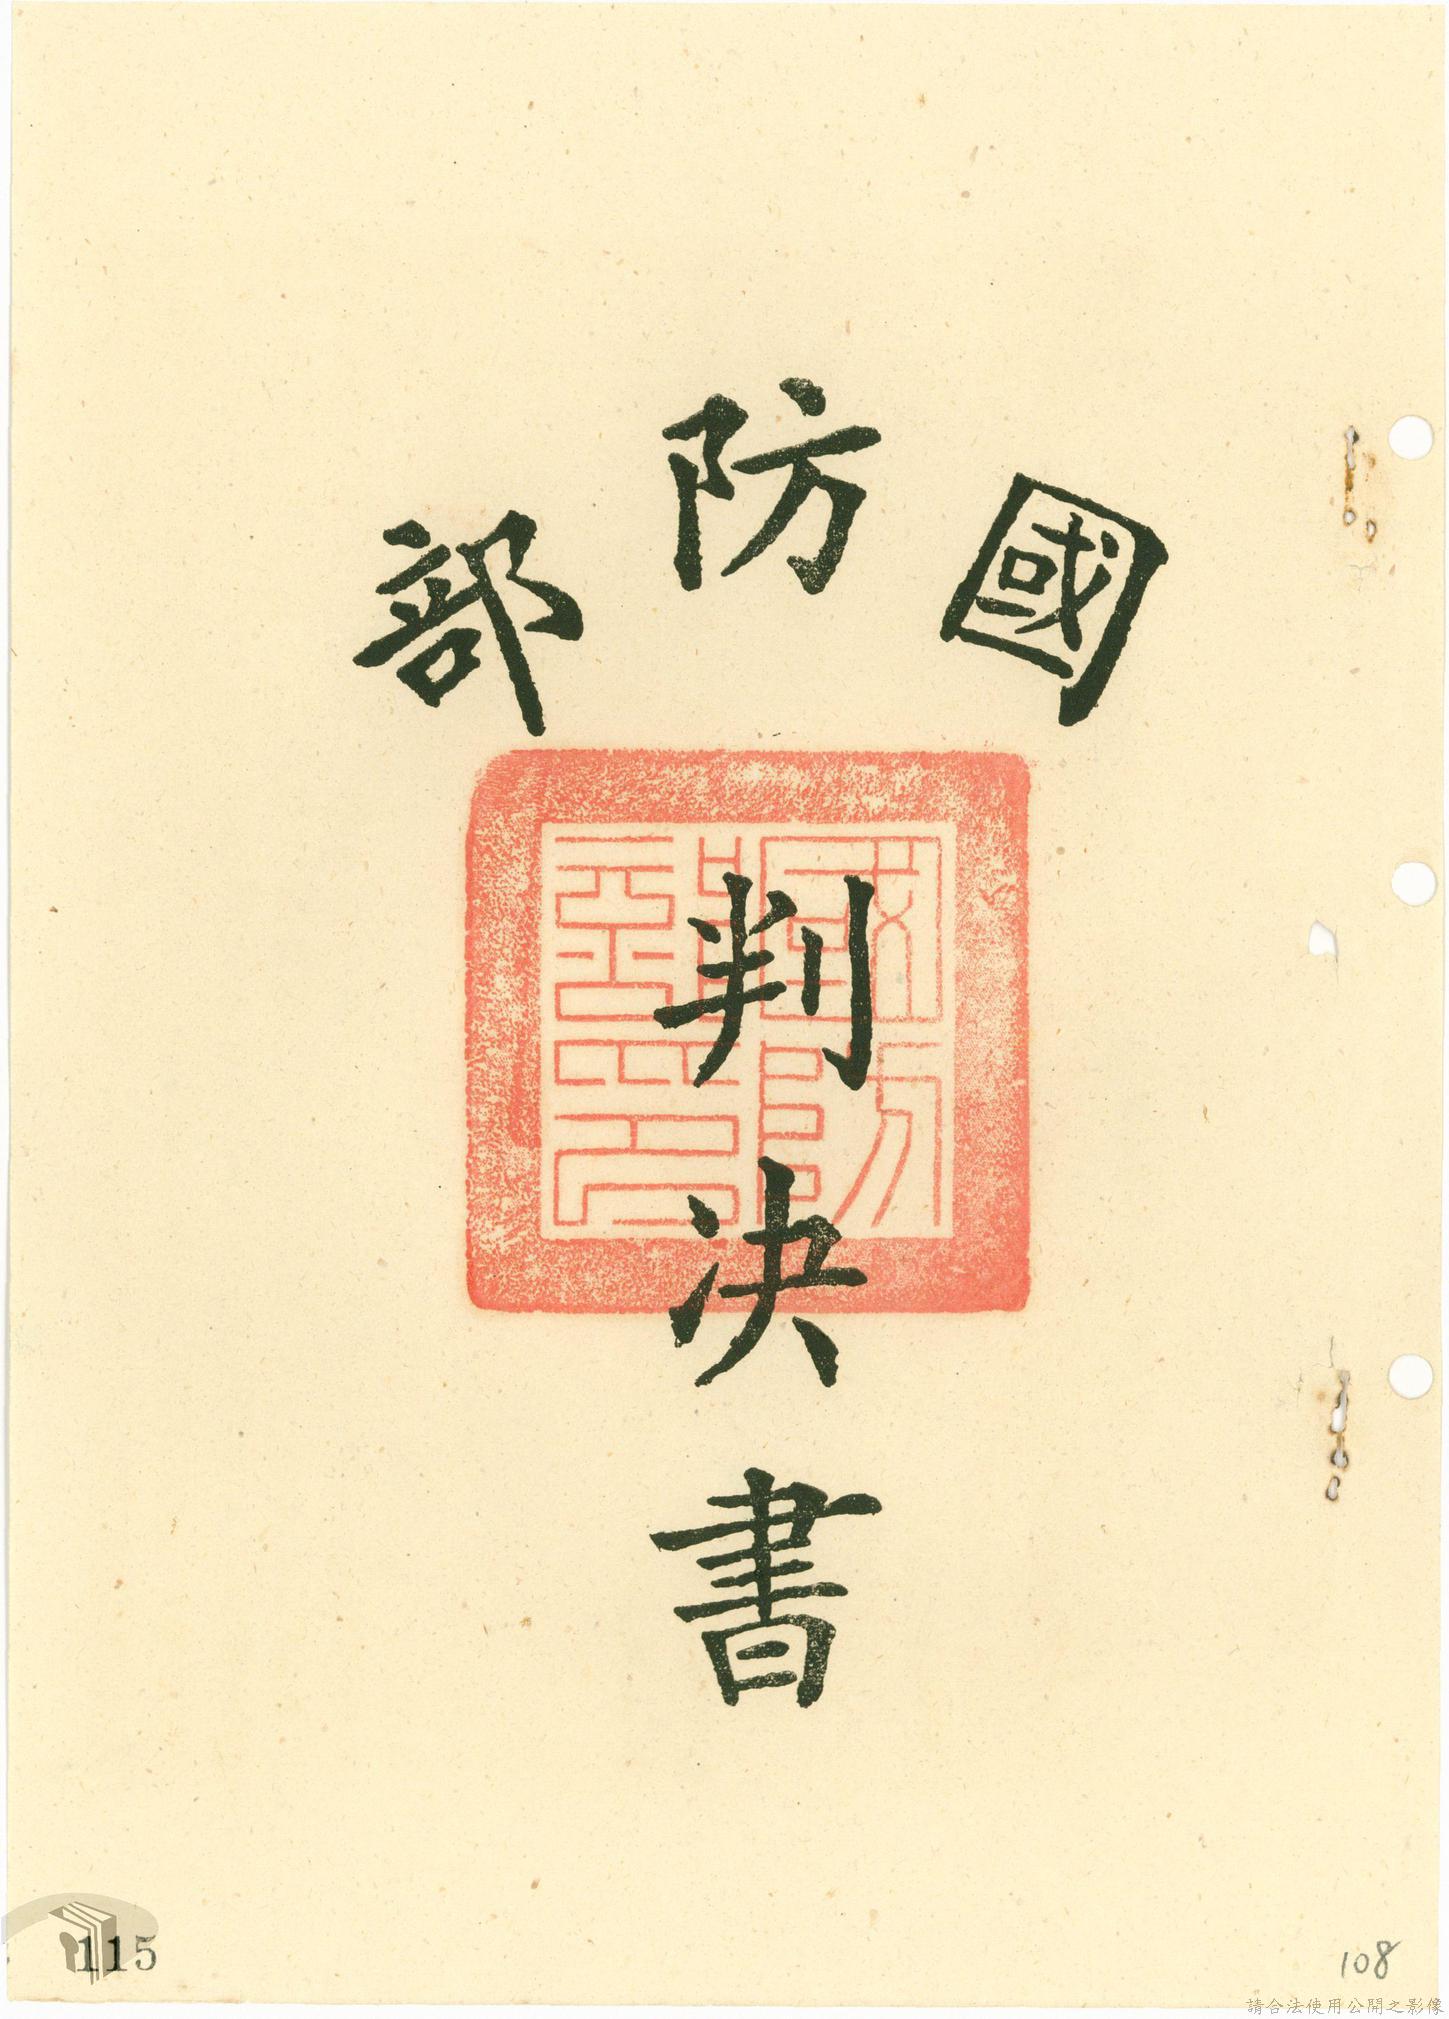 國防部
判決書
國防部印
115
108
請合法使用公開之影像